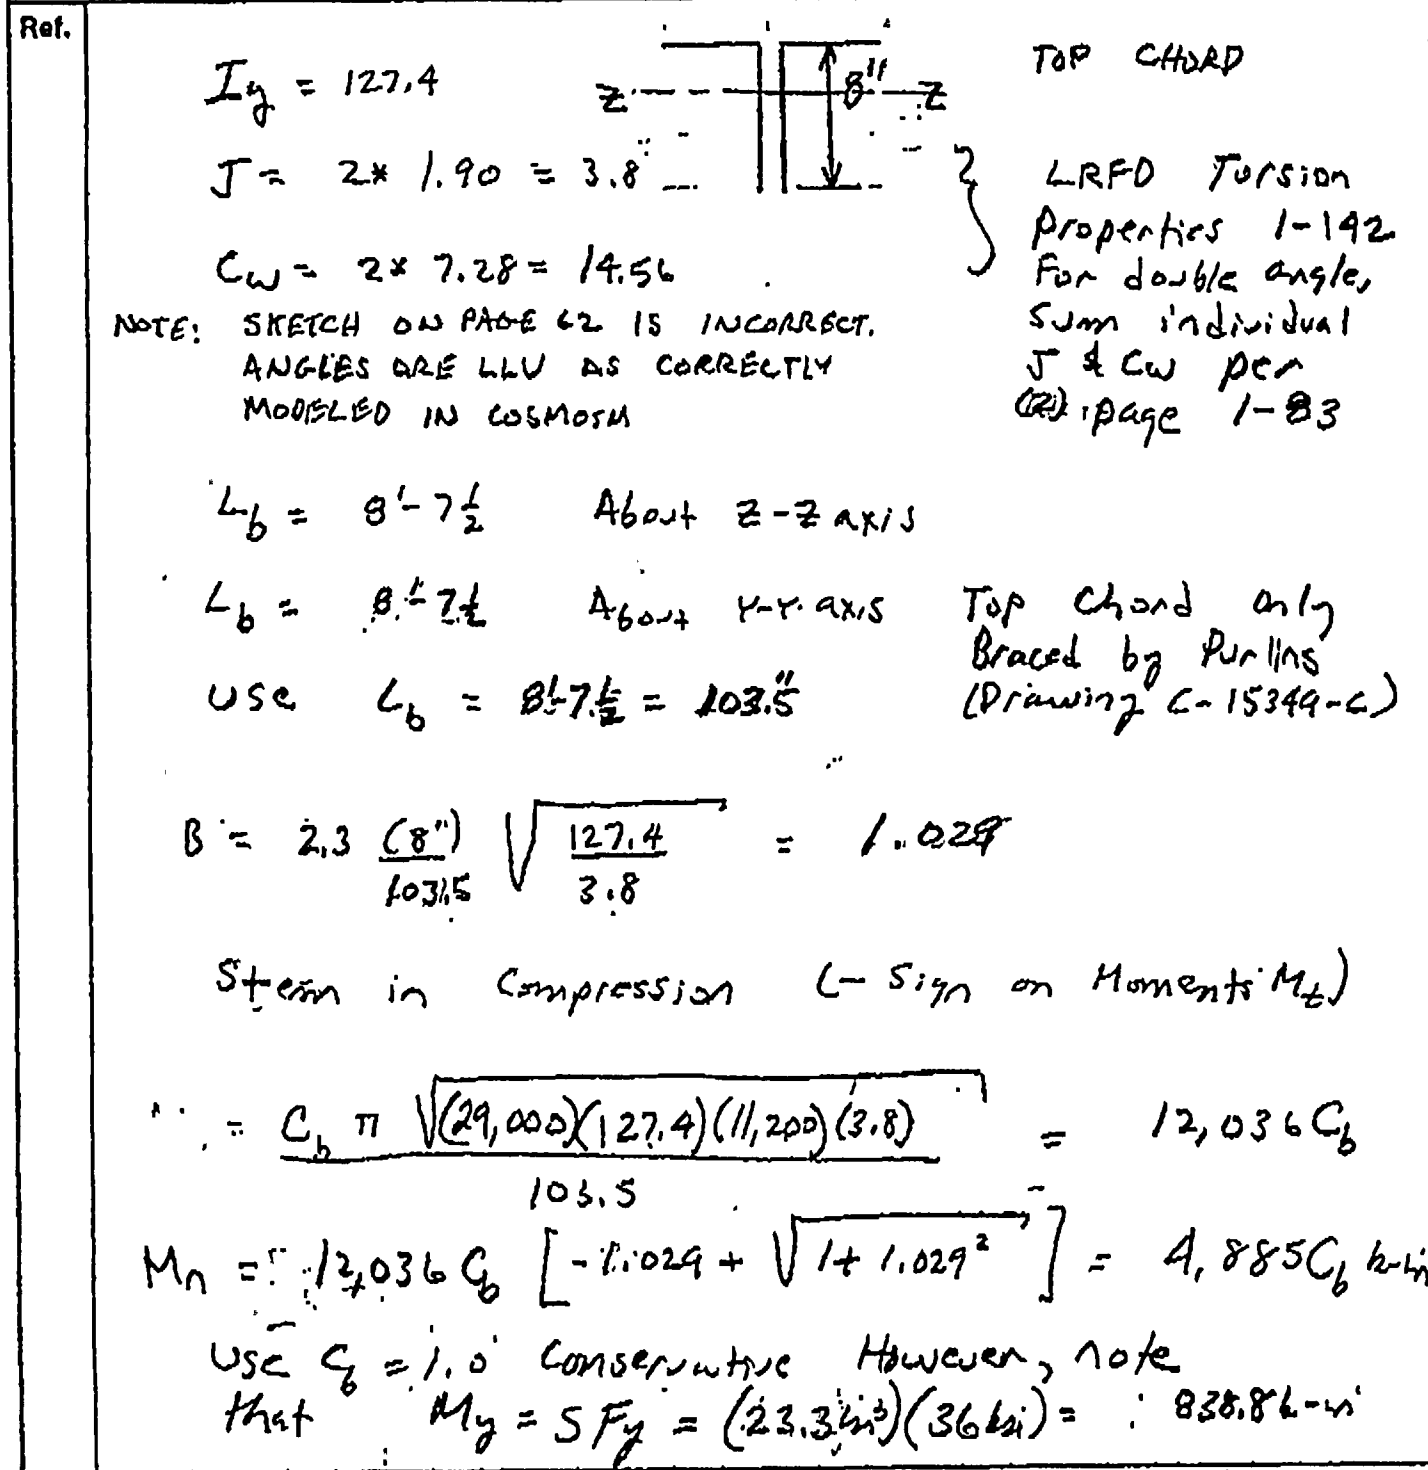 Ref.
TOP CHORD
Iy = 127.4
Z 8" Z
J = 2* 1.90 = 3.8
LRFD Torsion
Properties 1-142
For double angle,
Sum individual
J & Cw per
page 1-83
Cw = 2* 7.28 = 14.56
NOTE: SKETCH ON PAGE 62 IS INCORRECT.
ANGLES ARE LLV AS CORRECTLY
MODELED IN COSMOSM
Lb = 8'-7 1/2 About Z-Z axis
Lb = 8'-7 1/2 About Y-Y axis Top Chord only
Braced by Purlins
(Drawing C-15349-C)
USE Lb = 8'-7 1/2 = 103.5"
B = 2.3 (8")/103.5 √(127.4/3.8) = 1.029
Stem in Compression (- Sign on Moments Mz)
= Cb π √((29,000)(127.4)(11,200)(3.8)) / 103.5 = 12,036 Cb
Mn = 12,036 Cb [-1.029 + √(1 + 1.029²)] = 4,885 Cb k-in
Use Cb = 1.0 Conservative However, note
that My = S Fy = (23.3 in³)(36 ksi) = 838.8 k-in